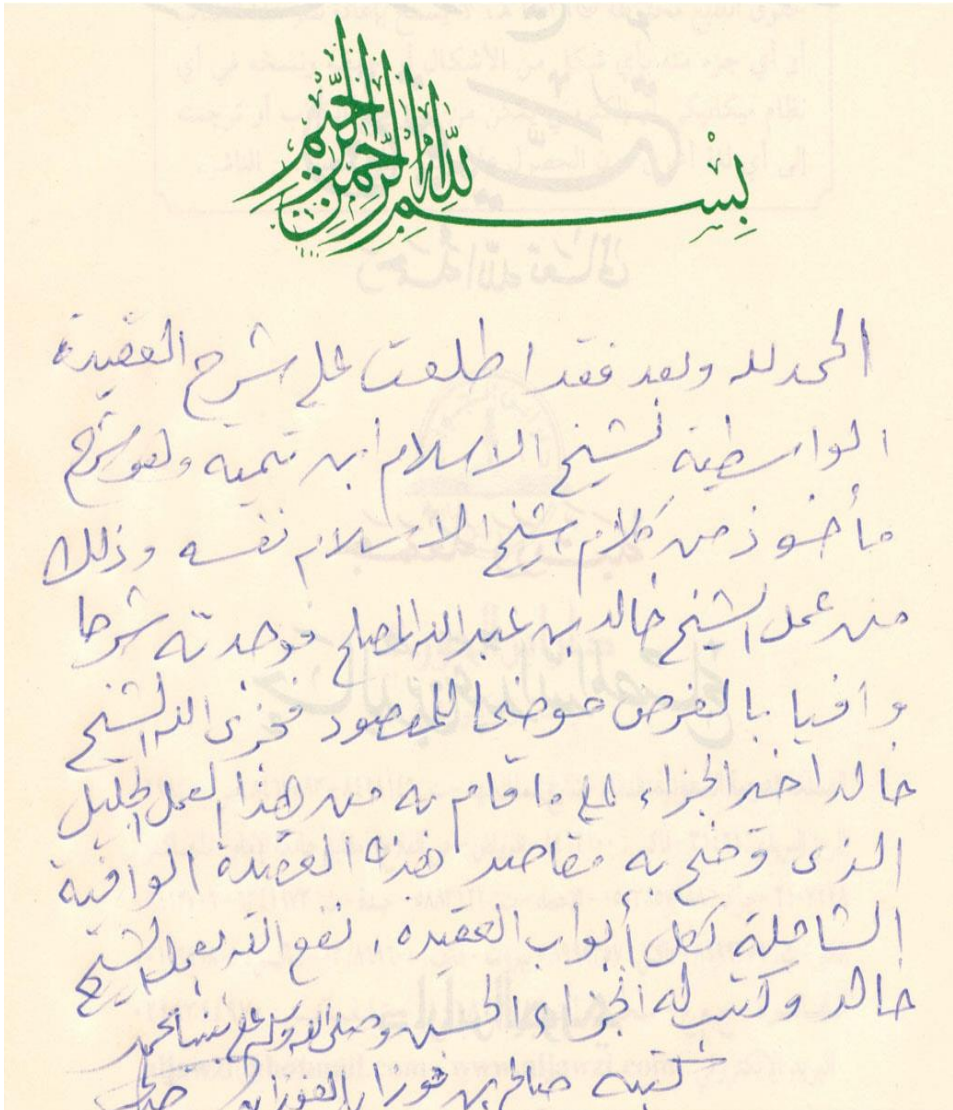 بِسْمِ اللهِ الرَّحْمَنِ الرَّحِيمِ
الحمد لله وبعد فقد اطلعت على شرح العقيدة
الواسطية لشيخ الاسلام ابن تيمية وهو شرح
مأخوذ من كلام شيخ الاسلام نفسه وذلك
من عمل الشيخ خالد بن عبد الله المصلح فوجدته شرحا
وافيا بالغرض موضحا للمقصود فجزى الله الشيخ
خالدا خير الجزاء على ما قام به من هذا العمل الجليل
الذى وضح به مقاصد هذه العقيدة الوافية
الشاملة لكل أبواب العقيدة، نفع الله بعمل الشيخ
خالد وكتب له الجزاء الحسن وصلى الله وسلم على نبينا محمد
كتبه صالح بن فوزان الفوزان